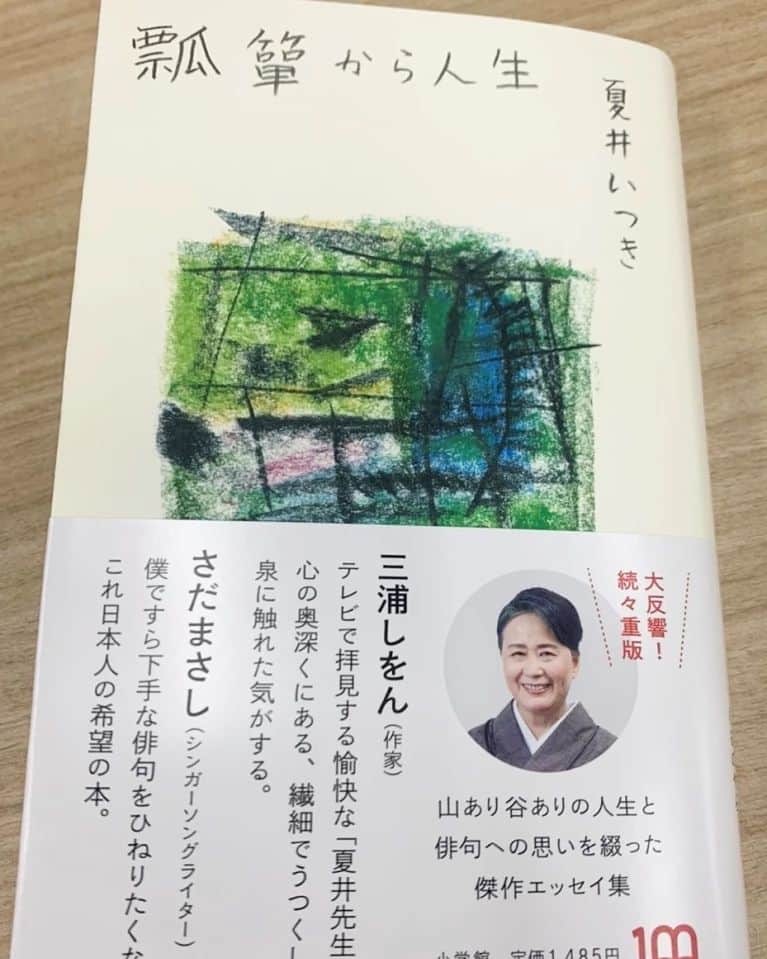 瓢箪から人生
夏井いつき
大反響！
続々重版
三浦しをん（作家）
テレビで拝見する愉快な「夏井先生
心の奥深くにある、繊細でうつくし
泉に触れた気がする。
さだまさし（シンガーソングライター）
僕ですら下手な俳句をひねりたくな
これ日本人の希望の本。
山あり谷ありの人生と
俳句への思いを綴った
傑作エッセイ集
小学館 定価1,485円